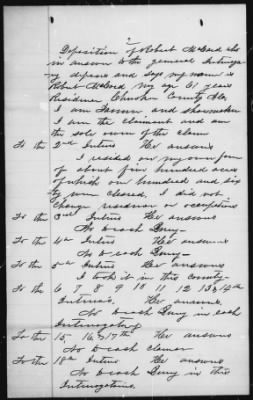 Deposition of Robert McCord who
in answer to the general Interoga-
ry deposes and says my name is
Robert McCord my age 61 years
Residence Cherokee County Ala
I am Farmer and shoemaker
I am the claimant and am
the sole owner of the claim
To the 2nd Interu He answers
I resided on my own farm
of about five hundred acres
of which one hundred and six
ty were cleared, I did not
change residence or occupations
To the 3rd Interu He answers
To each Deny—
To the 4th Interu He answers
To each Deny—
To the 5th Interu He answers
I took it in this county—
To the 6 7 8 9 10 11 12 13 & 14th
Interu's. He answers
To each Deny in each
Interogatory
To the 15 16 & 17th He answers
To each
To the 18th Interu He answers
To each Deny in this
Interogatories.